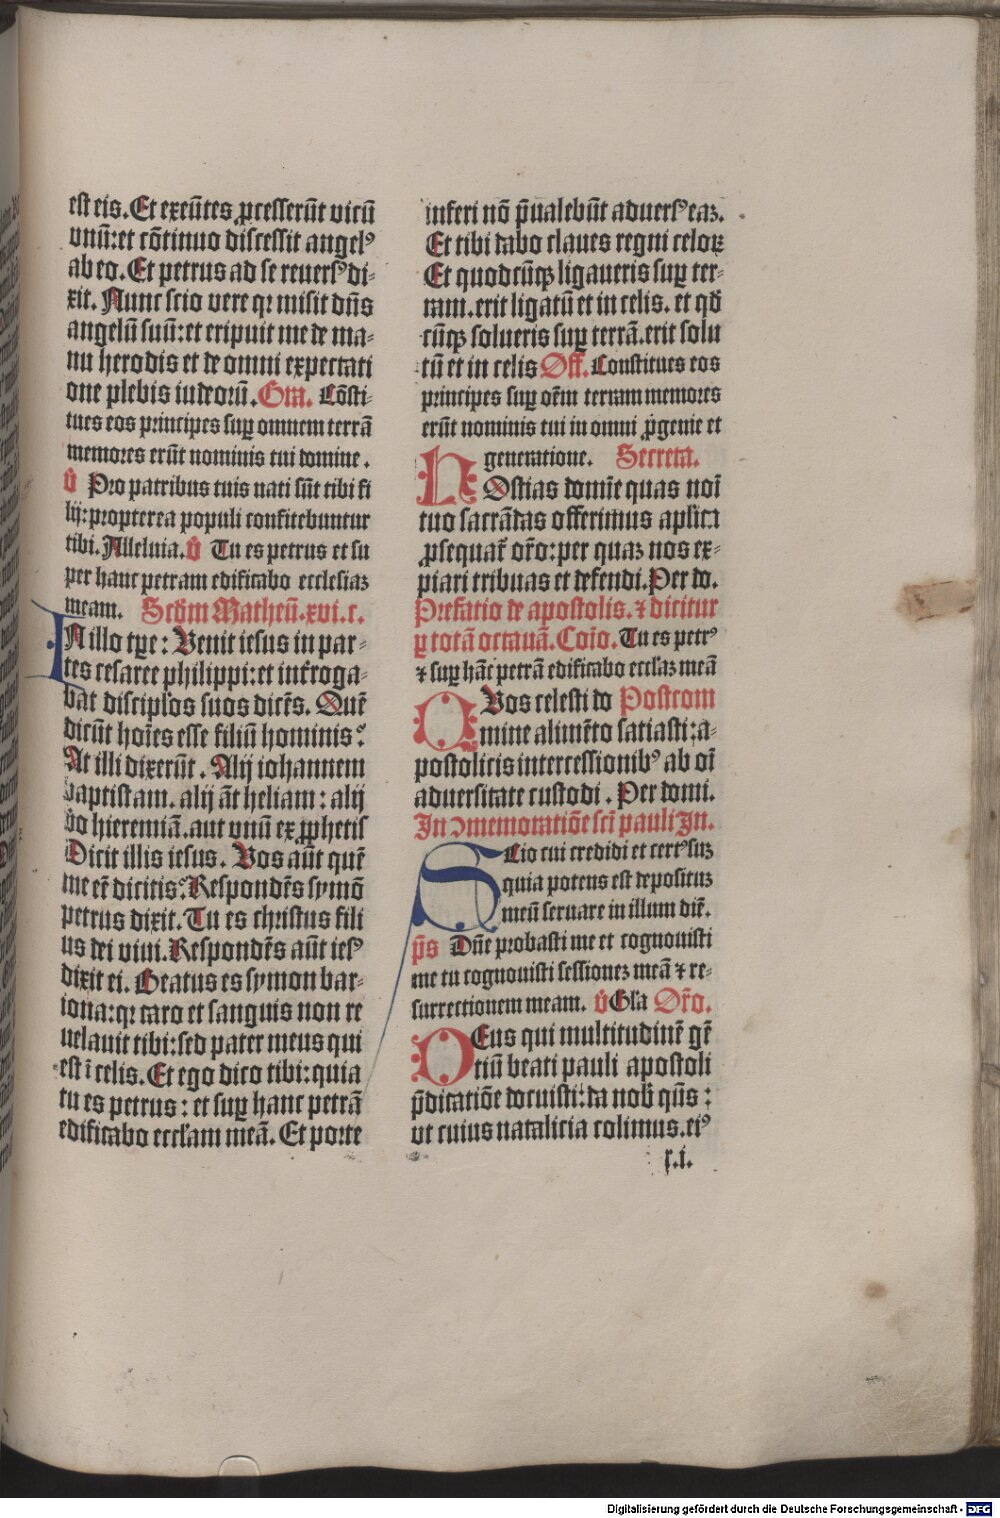 est eis. Et exeūtes ꝓcesserūt vicū
vnū: et cōtinuo discessit angelꝰ
ab eo. Et petrus ad se reuersꝰ di-
xit. Nunc scio vere qꝛ misit dn̄s
angelū suū: et eripuit me de ma-
nu herodis et de omni expectati
one plebis iudeorū. Gra. Cōsti-
tues eos principes suꝑ omnem terrā
memores erūt nominis tui domine.
v̄ Pro patribus tuis nati sūt tibi fi
lij: propterea populi confitebuntur
tibi. Alleluia. v̄ Tu es petrus et su
per hanc petram edificabo ecclesiaꝫ
meam. Scd̄m Matheū. xvi. c.
IN illo tꝑe: Venit iesus in par-
tes cesaree philippi: et int̄roga-
bat discipl'os suos dicēs. Quē
dicūt hoīes esse filiū hominis?
At illi dixerūt. Alij iohannem
baptistam. alij āt heliam: alij
v̄o hieremiā. aut vnū ex ꝓphetis
Dicit illis iesus. Vos aūt quē
me eē dicitis? Respondēs symō
petrus dixit. Tu es christus fili
us dei viui. Respondēs aūt iesꝰ
dixit ei. Beatus es symon bar-
iona: qꝛ caro et sanguis non re
uelauit tibi: sed pater meus qui
est ī celis. Et ego dico tibi: quia
tu es petrus: et suꝑ hanc petrā
edificabo eccl'am meā. Et porte
inferi nō p̄ualebūt aduersꝰ eaꝫ.
Et tibi dabo claues regni celoꝝ
Et quodcūqꝫ ligaueris suꝑ ter-
ram. erit ligatū et in celis. et qd̄
cūqꝫ solueris suꝑ terrā. erit solu
tū et in celis Off. Constitues eos
principes suꝑ oēm terram memores
erūt nominis tui in omni ꝓgenie et
generatione. Secreta.
HOstias domīe quas noī
tuo sacrādas offerimus aplīca
ꝓsequat̄ or̄o: per quaꝫ nos ex-
piari tribuas et defendi. Per do.
Prefatio de apostolis. ⁊ dicitur
ꝑ totā octauā. Cōio. Tu es petrꝰ
⁊ suꝑ hāc petrā edificabo eccl'aꝫ meā
QVos celesti do Postcom
mine alimēto satiasti: a-
postolicis intercessionibꝰ ab oī
aduersitate custodi. Per domi.
In ↄmemoratiōe scī pauli In.
SCio cui credidi et certꝰ suꝫ
quia potens est depositūꝫ
meū seruare in illum diē.
p̄s Dn̄e probasti me et cognouisti
me tu cognouisti sessioneꝫ meā ⁊ re-
surrectionem meam. v̄ Gl'a Or̄o.
DEus qui multitudinē gē
tiū beati pauli apostoli
p̄dicatiōe docuisti: da nob̄ qs̄:
vt cuius natalicia colimus. eiꝰ
s.i.
Digitalisierung gefördert durch die Deutsche Forschungsgemeinschaft - DFG